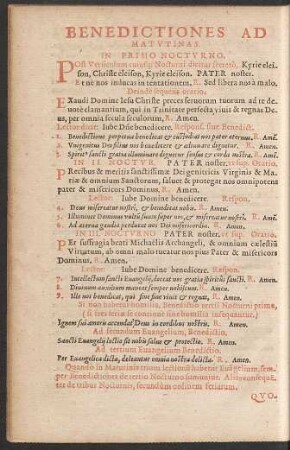 BENEDICTIONES AD
MATVTINAS.
IN PRIMO NOCTVRNO.
POst Versiculum cuiusque Nocturni dicitur secreto. Kyrie elei-
son, Christe eleison, Kyrie eleison. PATER noster.
Et ne nos inducas in tentationem. R. Sed libera nos à malo.
Deinde sequens oratio.
EXaudi Domine Iesu Christe preces seruorum tuorum ad te de-
uotè clamantium, qui in Trinitate perfecta viuis & regnas De-
us, per omnia secula seculorum. R. Amen.
Lector dicat. Iube Dñe benedicere. Respons. siue Benedict.
1. Benedictione perpetua benedicat & custodiat nos pater eternus. R. Amẽ.
2. Vnigenitus Dei filius nos benedicere & adiuuare dignetur. R. Amen.
3. Spirit⁹ sancti gratia illuminare dignetur sensus & corda nostra. R. Amẽ.
IN II. NOCTVR. PATER noster, vt sup. Oratio.
PRecibus & meritis sanctissimæ Deigenitricis Virginis & Ma-
riæ & omnium Sanctorum, saluet & protegat nos omnipotens
pater & misericors Dominus. R. Amen.
Lector Iube Domine benedicere. Respon.
4. Deus misereatur nostri, & benedicat nobis. R. Amen.
5. Illuminet Dominus vultũ suum super nos, & misereatur nostri. R. Amẽ.
6. Ad æterna gaudia perducat nos Dei misericordia. R. Amen.
IN III. NOCTVRNO PATER noster, vt sup. Oratio.
PEr suffragia beati Michaelis Archangeli, & omnium cælestiũ
Virtutum, ab omni malo tueatur nos pius Pater & misericors
Dominus. R. Amen.
Lector Iube Domine benedicere. Respon.
7. Intellectum sancti Euangelii, det nobis gratia spiritus sancti. R. Amen.
8. Diuinum auxilium maneat semper nobiscum. R. Amen.
9. Ille nos benedicat, qui sine fine viuit & regnat. R. Amen.
Si non habetur homilia, Benedictio tertii Nocturni primæ,
(si tres feriæ sit continuè sine homilia sequantur.)
Ignem sui amoris accendat Deus in cordibus nostris. R. Amen.
Ad secundum Euangelium, Benedictio.
Sancti Euangelij lectio sit nobis salus & protectio. R. Amen.
Ad tertium Euangelium Benedictio.
Per Euangelica dicta, deleantur omnia nostra delicta. R. Amen.
Quando in Matutinis trium lectionũ habetur Euãgelium, sem-
per Benedictiones de tertio Nocturno sumuntur. Alias consequẽ-
ter de tribus Nocturnis, secundum ordinem feriarum.
QVO.